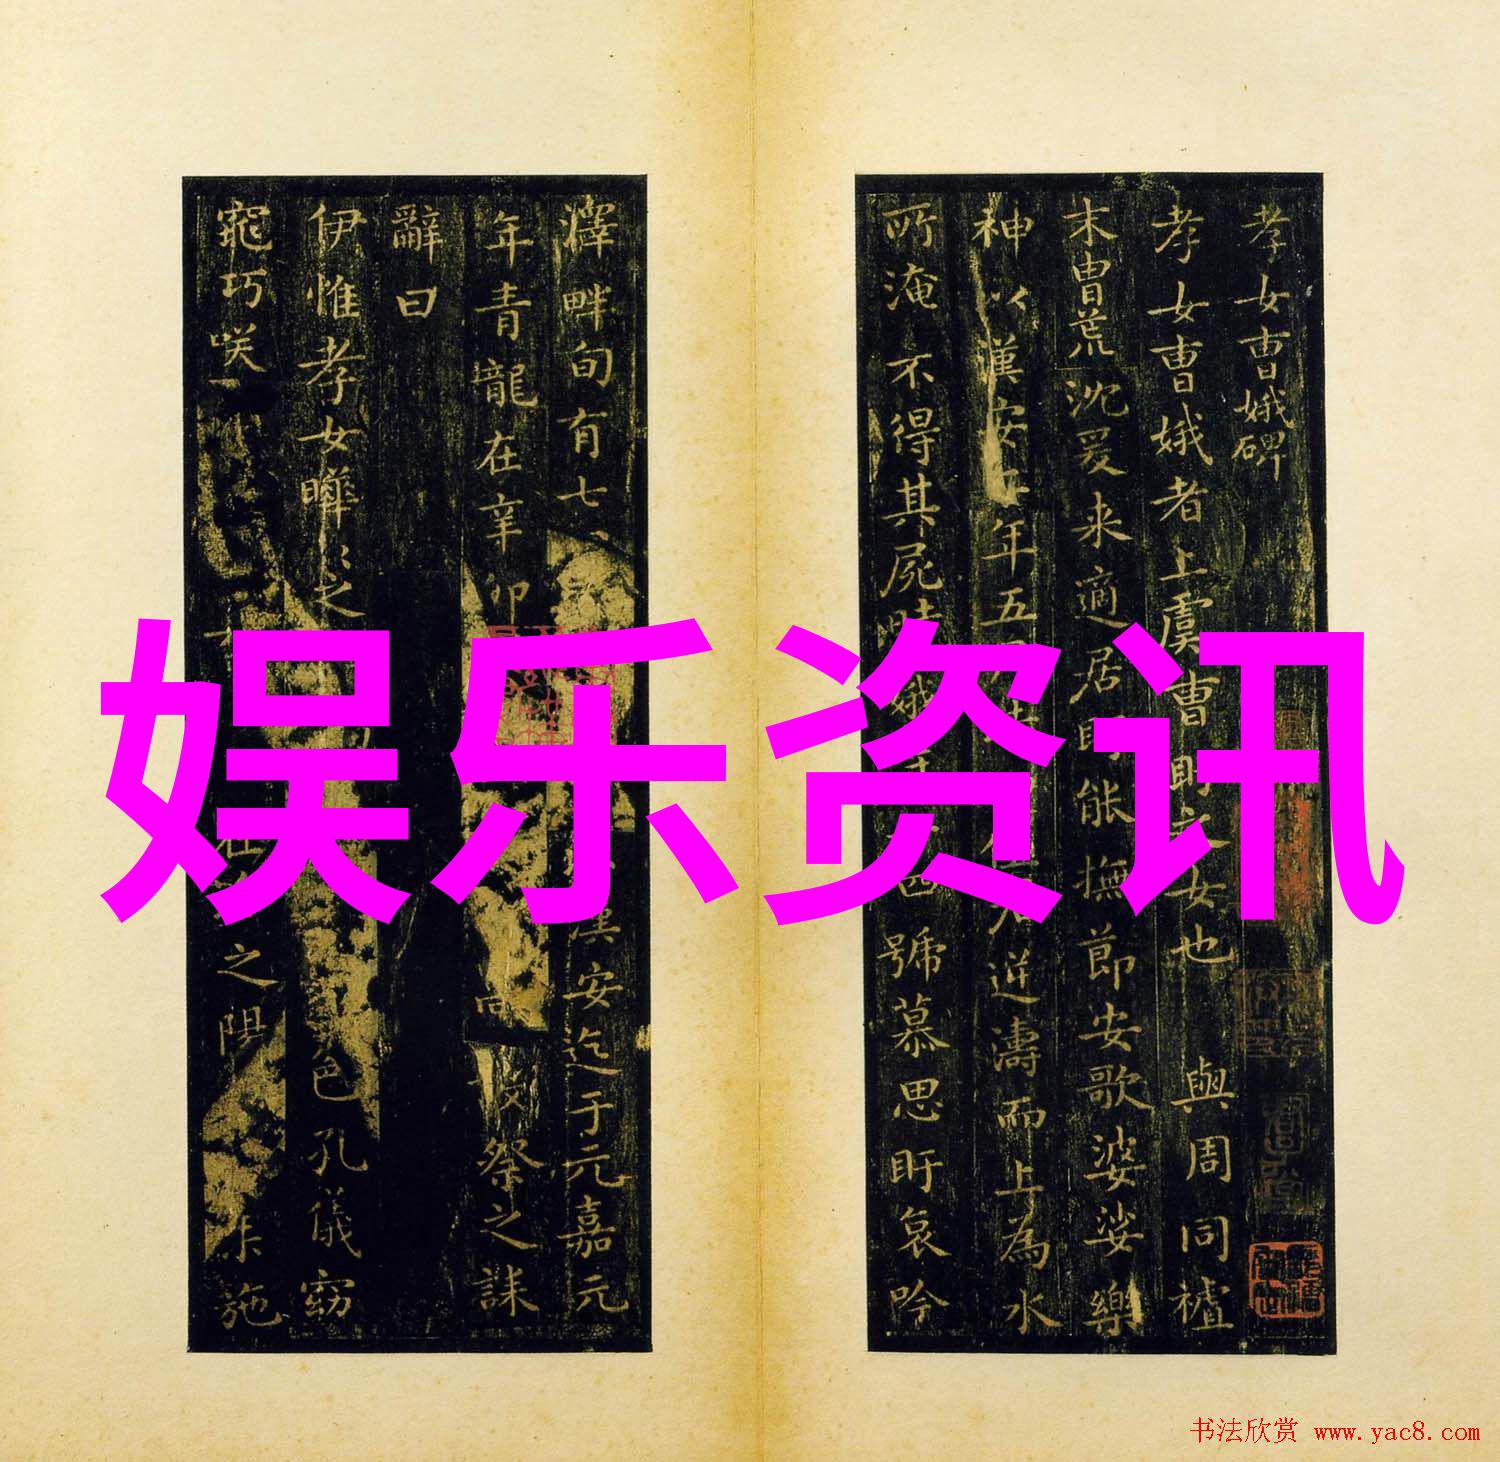 孝女曹娥碑
孝女曹娥者上虞曹盱之女也與周同禇
末胄荒沈爰来適居盱能撫節安歌婆娑樂
神以漢安二年五月
迎濤而上為水
所淹不得其屍時娥
號慕思盱哀吟
澤畔旬有七
漢安迄于元嘉元
年青龍在辛卯
祭之誄
辭曰
伊惟孝女曄之
色孔儀窈
窕巧咲
之陽
施
娱乐资讯
书法欣赏 www.yac8.com